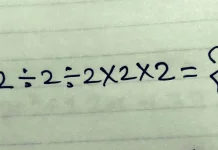 2÷2÷2×2×2=